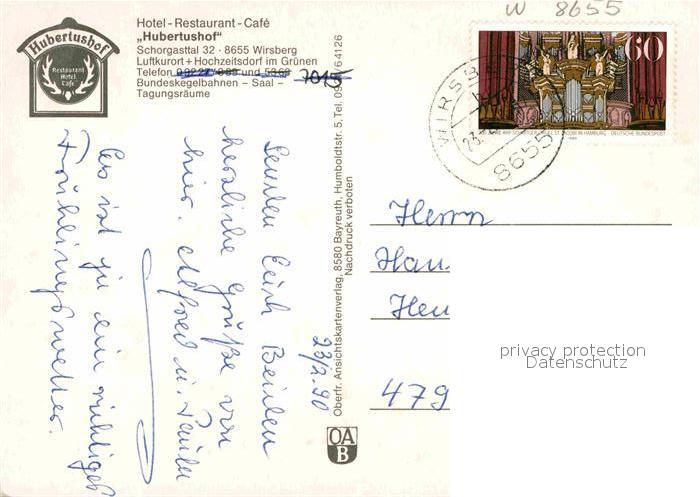 W 8655
Hubertushof
Restaurant
Hotel
Café
Hotel - Restaurant - Café
„Hubertushof"
Schorgasttal 32 · 8655 Wirsberg
Luftkurort + Hochzeitsdorf im Grünen
Telefon und 7015
Bundeskegelbahnen – Saal –
Tagungsräume
60
DEUTSCHE BUNDESPOST
WIRSB
8655
23/2.90
herzliche Grüße von
hier. Alfred u.
Es ist ja ein richtiges
Frühlingswetter.
Oberfr. Ansichtskartenverlag, 8580 Bayreuth, Humboldtstr. 5, Tel.
Nachdruck verboten
OA
B
Herrn
Han
Hen
479
privacy protection
Datenschutz